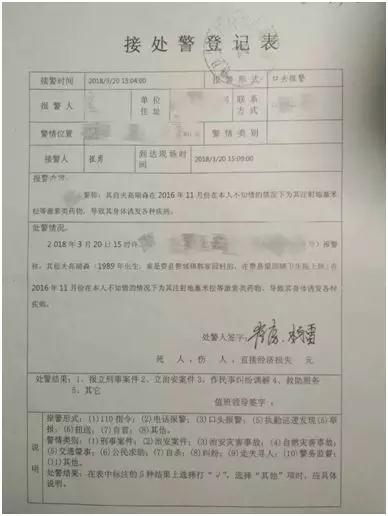 接处警登记表
接警时间 2018/3/20 15:04:00 报警形式 口头报警
报警人 单位住址 联系方式
警情位置 警情类别
接警人 崔勇 到达现场时间 2018/3/20 15:09:00
报警
警称：其前夫高瑞森在2016年11月份在本人不知情的情况下为其注射地塞米
松等激素类药物，导致其身体诱发各种疾病。
处警情况：
2018年3月20日15时许 报警
称：其前夫高瑞森（1989年出生，
2016年11月份在本人不知情的情况下为其注射地塞米松等激素类药物，导致其身体诱发各种
疾病。
处警人签字：
死 人，伤 人，直接经济损失 元
处警结果：1、报立刑事案件 2、立治安案件 3、作民事纠纷调解 4、救助服务
5、其它
值班领导签字：
说明
报警形式：(1)110指令；(2)电话报警；(3)口头报警；(5)执勤巡逻发现(5)举
报；(6)扭送；(7)自首；(8)其他。
警情类别：(1)刑事案件；(2)治安案件；(3)治安灾害事故；(4)自然灾害事故；
(5)交通肇事；(6)公民求助；(7)自杀；(8)纠纷；(9)走失寻人；(10)警务监督；
(11)其他。
处警结果：在表中标注的5种结果上选择打“√”，选择“其他”项时，应具体
说明。